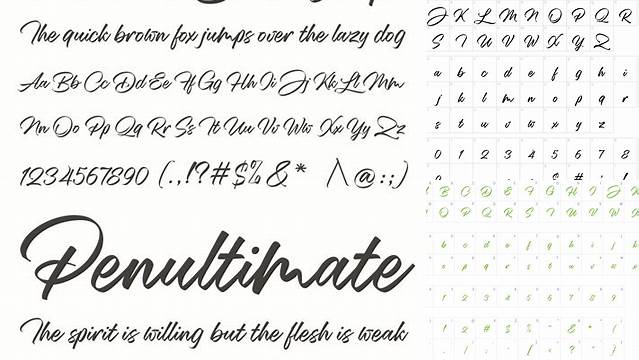 The quick brown fox jumps over the lazy dog
Aa Bb Cc Dd Ee Ff Gg Hh Ii Jj Kk Ll Mm
Nn Oo Pp Qq Rr Ss Tt Uu Vv Ww Xx Yy Zz
1234567890 (.,!?#$%&* /\@:;)
Penultimate
The spirit is willing but the flesh is weak
J K L M N O P Q R
S T U V W X Y Z
a b c d e f g h i
j k l m n o p q r
s t u v w x y z
0 1 2 3 4 5 6 7 8
B C D E F G H I J K
O P Q R S T U V W
b c d e f g h i j k
o p q r s t u v w
1 2 3 4 5 6 7 8 9